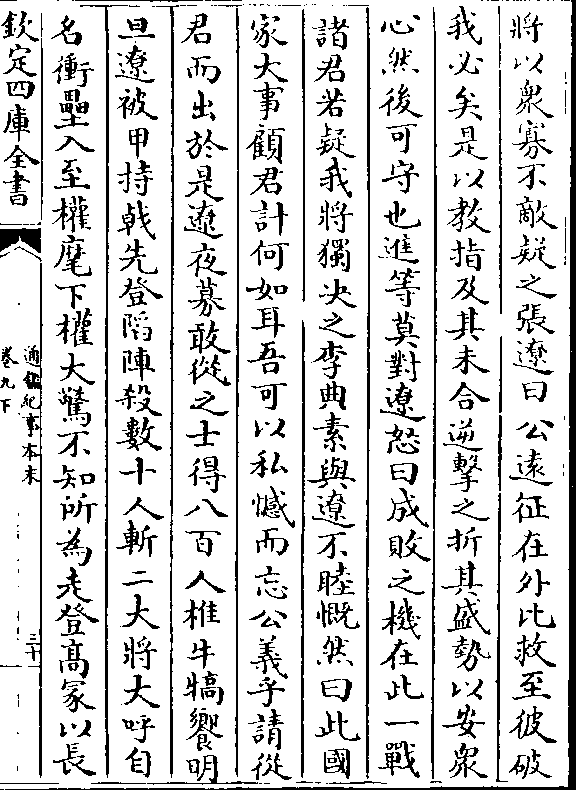 將以衆寡不敵疑之張遼曰公遠征在外比救至彼破
我必矣是以教指及其未合逆擊之折其盛勢以安衆
心然後可守也進等莫對遼怒曰成敗之機在此一戰
諸君若疑我將獨決之李典素與遼不睦慨然曰此國
家大事顧君計何如耳吾可以私憾而忘公義乎請從
君而出於是遼夜募敢從之士得八百人椎牛犒饗明
旦遼被甲持戟先登陷陣殺數十人斬二大將大呼自
名衝壘入至權麾下權大驚不知所為走登髙冢以長
欽定四庫全書
通鑑紀事本末
卷九下
三十